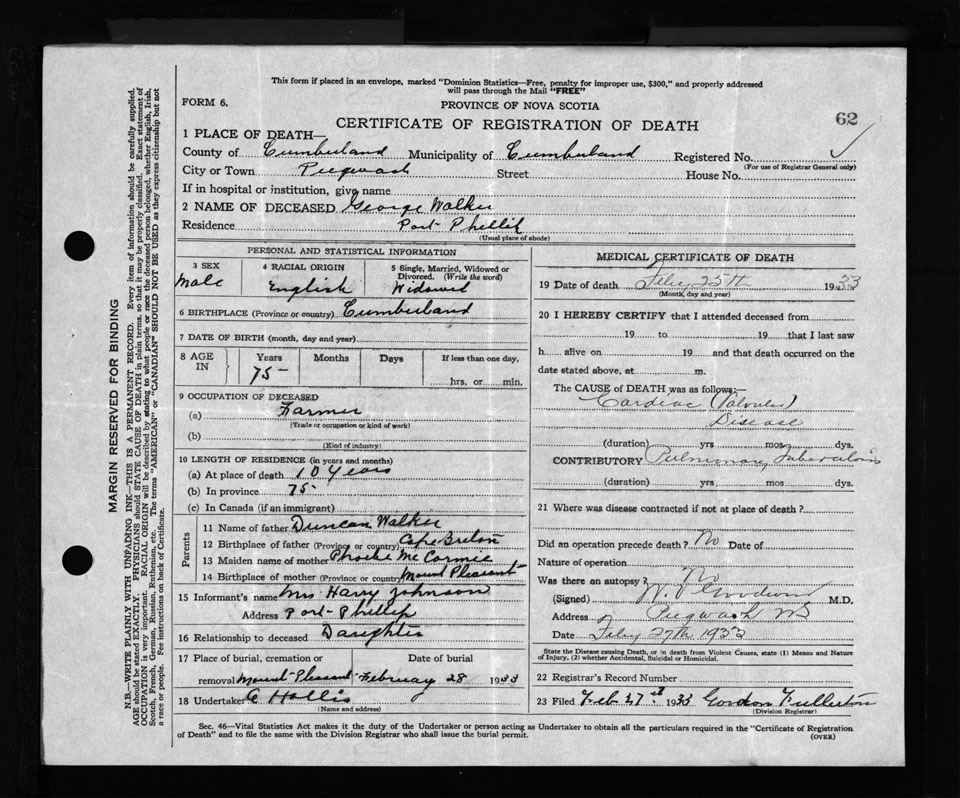 This form if placed in an envelope, marked "Dominion Statistics—Free, penalty for improper use, $300," and properly addressed
will pass through the Mail "FREE"
FORM 6.
PROVINCE OF NOVA SCOTIA
62
CERTIFICATE OF REGISTRATION OF DEATH
1 PLACE OF DEATH—
County of Cumberland Municipality of Cumberland Registered No. ✓
(For use of Registrar General only)
City or Town Pugwash Street House No.
If in hospital or institution, give name
2 NAME OF DECEASED George Walker
Residence Port Phillip
(Usual place of abode)
PERSONAL AND STATISTICAL INFORMATION
3 SEX 4 RACIAL ORIGIN 5 Single, Married, Widowed or Divorced. (Write the word)
Male English Widowed
6 BIRTHPLACE (Province or country) Cumberland
7 DATE OF BIRTH (month, day and year)
8 AGE IN Years Months Days If less than one day,
75 hrs. or min.
9 OCCUPATION OF DECEASED
(a) Farmer
(Trade or occupation or kind of work)
(b)
(Kind of industry)
10 LENGTH OF RESIDENCE (in years and months)
(a) At place of death 10 Years
(b) In province 75
(c) In Canada (if an immigrant)
Parents
11 Name of father Duncan Walker
12 Birthplace of father (Province or country) Cape Breton
13 Maiden name of mother Phoebe McCormic
14 Birthplace of mother (Province or country) Mount Pleasant
15 Informant's name Mrs Harry Johnson
Address Port-Phillip
16 Relationship to deceased Daughter
17 Place of burial, cremation or Date of burial
removal Mount-Pleasant February 28 1933
18 Undertaker C Hollis
(Name and address)
MEDICAL CERTIFICATE OF DEATH
19 Date of death Feby 25th 1933
(Month, day and year)
20 I HEREBY CERTIFY that I attended deceased from
19 to 19 that I last saw
h alive on 19 and that death occurred on the
date stated above, at m.
The CAUSE of DEATH was as follows:—
Cardiac (Valvular)
Disease
(duration) yrs mos dys.
CONTRIBUTORY Pulmonary Tuberculosis
(duration) yrs. mos. dys.
21 Where was disease contracted if not at place of death?
Did an operation precede death? No Date of
Nature of operation
Was there an autopsy? No
(Signed) M.D.
Address Pugwash NS
Date Feby 27th 1933
State the Disease causing Death, or in death from Violent Causes, state (1) Means and Nature
of Injury, (2) whether Accidental, Suicidal or Homicidal.
22 Registrar's Record Number
23 Filed Feb 27th 1933 Gordon Fullerton
(Division Registrar)
Sec. 46—Vital Statistics Act makes it the duty of the Undertaker or person acting as Undertaker to obtain all the particulars required in the "Certificate of Registration
of Death" and to file the same with the Division Registrar who shall issue the burial permit.
(OVER)
MARGIN RESERVED FOR BINDING
N.B.—WRITE PLAINLY WITH UNFADING INK—THIS IS A PERMANENT RECORD. Every item of information should be carefully supplied.
AGE should be stated EXACTLY. PHYSICIANS should STATE CAUSE OF DEATH in plain terms, so that it may be properly classified. Exact statement of
OCCUPATION is very important. RACIAL ORIGIN will be described by stating to what people or race the deceased person belonged, whether English, Irish,
Scotch, French, German, Russian, Ruthenian, etc. The terms "AMERICAN" or "CANADIAN" SHOULD NOT BE USED as they express citizenship but not
a race or people. See instructions on back of Certificate.